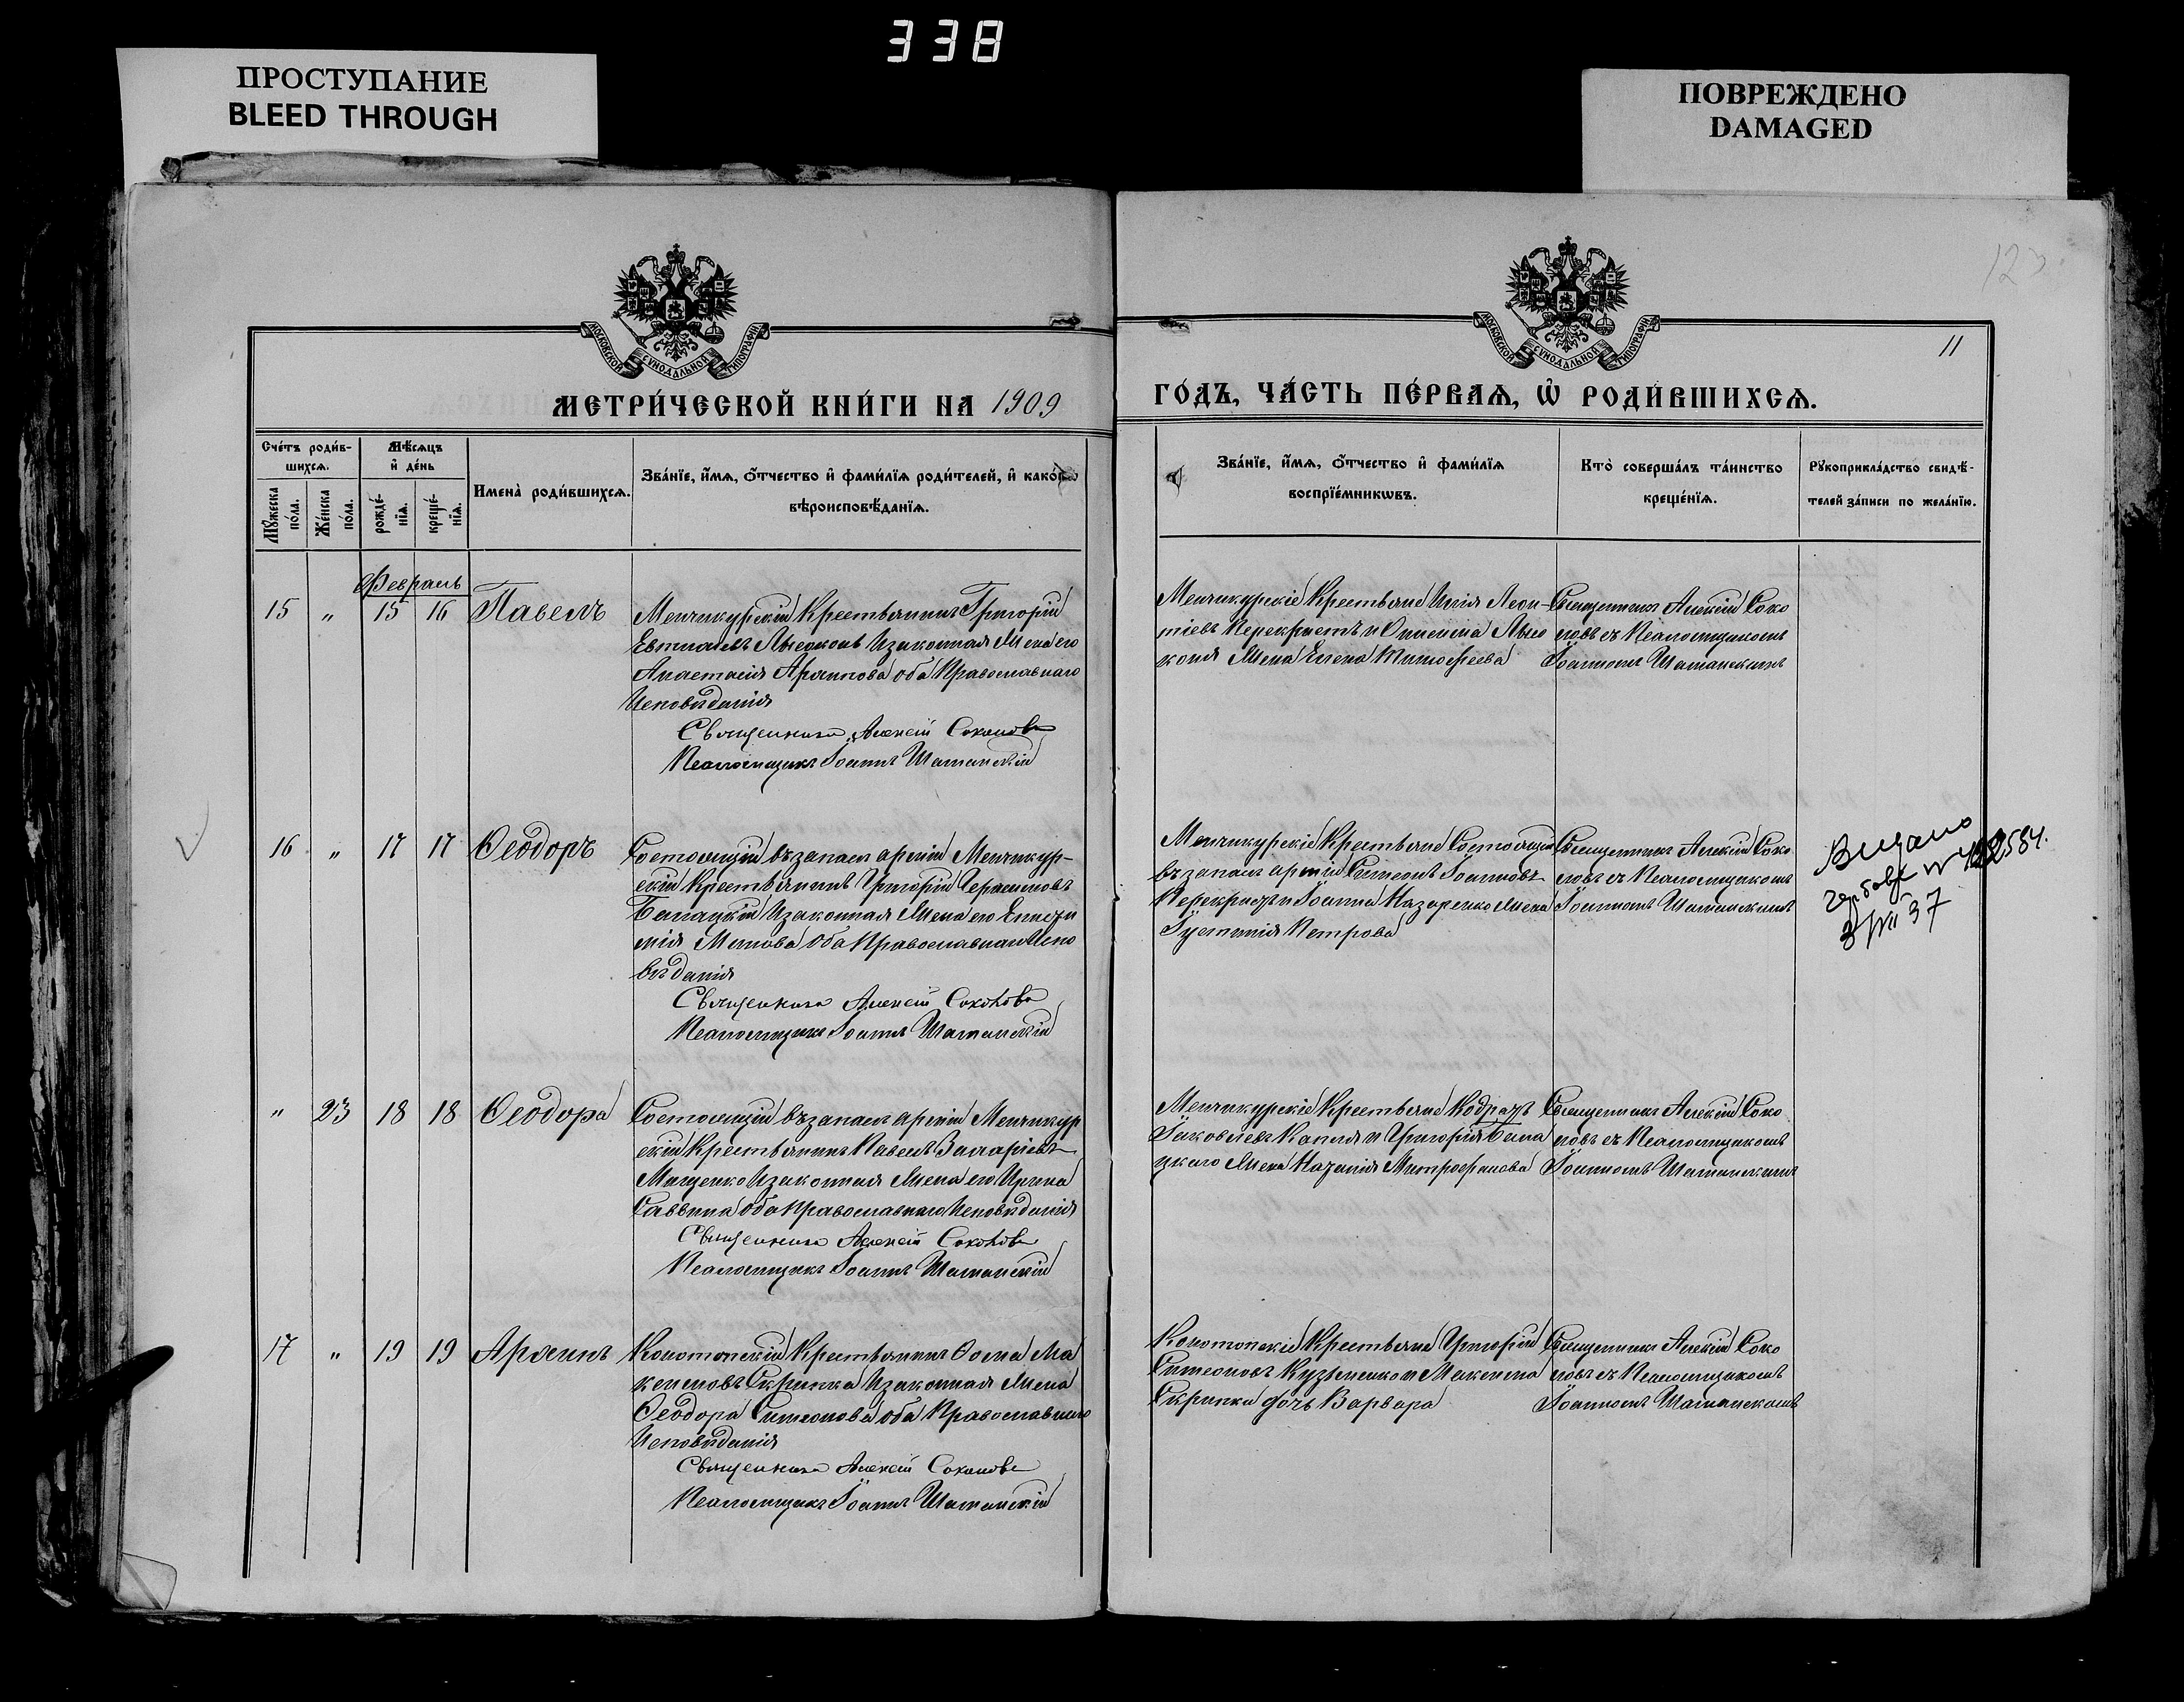 338
ПРОСТУПАНИЕ
BLEED THROUGH
ПОВРЕЖДЕНО
DAMAGED
МОСКОВСКОЙ СУНОДАЛЬНОЙ ТИПОГРАФІИ
МОСКОВСКОЙ СУНОДАЛЬНОЙ ТИПОГРАФІИ
11
МЕТРИ́ЧЕСКОЙ КНИ́ГИ НА 1909
ГО́ДЪ, ЧА́СТЬ ПЕ́РВАѦ, Ѿ РОДИ́ВШИХСѦ.
Сче́тъ роди́в-
шихсѧ.
Мѣ́сѧцъ
и҆ де́нь
Мꙋ́жеска по́ла.
Же́нска по́ла.
рожде́-
нїѧ.
креще́-
нїѧ.
Имена̀ роди́вшихсѧ.
Зва́нїе, и҆́мѧ, ѻ҆́тчество и҆ фами́лїѧ роди́телей, и҆ како́гѡ
вѣроисповѣ́данїѧ.
Зва́нїе, и҆́мѧ, ѻ҆́тчество и҆ фами́лїѧ
воспрїе́мникѡвъ.
Кто̀ соверша́лъ та́инство
креще́нїѧ.
Рꙋкоприкла́дство свидѣ́-
телей за́писи по жела́нїю.
Февраль
15 " 15 16 Павелъ
Менчикурскій Крестьянинъ Григорій
Евтихіевъ Лысоконь И законная Жена его
Анастасія Архипова оба Православнаго
Исповѣданія
Священникъ Алексій Соколовъ
Псаломщикъ Іоаннъ Шаманскій
Менчикурскіе Крестьяне Илія Леон-
тіевъ Перекрестъ и Онисима Лысо
коня Жена Елена Тимофеева
Священникъ Алексій Соко
ловъ съ Псаломщикомъ
Іоанномъ Шаманскимъ
16 " 17 17 Ѳеодоръ
Состоящій въ запасѣ арміи Менчикур-
скій Крестьянинъ Григорій Герасимовъ
Балацкій И законная Жена его Еписти
мія Маркова оба Православнаго Испо
вѣданія
Священникъ Алексій Соколовъ
Псаломщикъ Іоаннъ Шаманскій
Менчикурскіе Крестьяне Состоящій
въ запасѣ арміи Симеонъ Іоанновъ
Перекрестъ и Іоанна Назаренко Жена
Іустинія Петрова
Священникъ Алексій Соко
ловъ съ Псаломщикомъ
Іоанномъ Шаманскимъ
Видано
37
" 23 18 18 Ѳеодора
Состоящій въ запасѣ арміи Менчикур
скій Крестьянинъ Павелъ Захаріевъ
Мащенко И законная Жена его Ирина
Саввина оба Православнаго Исповѣданія
Священникъ Алексій Соколовъ
Псаломщикъ Іоаннъ Шаманскій
Менчикурскіе Крестьяне Кодратъ
Іаковлевъ Капля и Григорія Бала
цкаго Жена Наталія Митрофанова
Священникъ Алексій Соко
ловъ съ Псаломщикомъ
Іоанномъ Шаманскимъ
17 " 19 19 Архипъ
Конотопскій Крестьянинъ Ѳома Ма
ксимовъ Скрипка И законная Жена
Ѳеодора Симеонова оба Православнаго
Исповѣданія
Священникъ Алексій Соколовъ
Псаломщикъ Іоаннъ Шаманскій
Конотопскіе Крестьяне Григорій
Симеоновъ Кузьменко и Максима
Скрипки дочь Варвара
Священникъ Алексій Соко
ловъ съ Псаломщикомъ
Іоанномъ Шаманскимъ